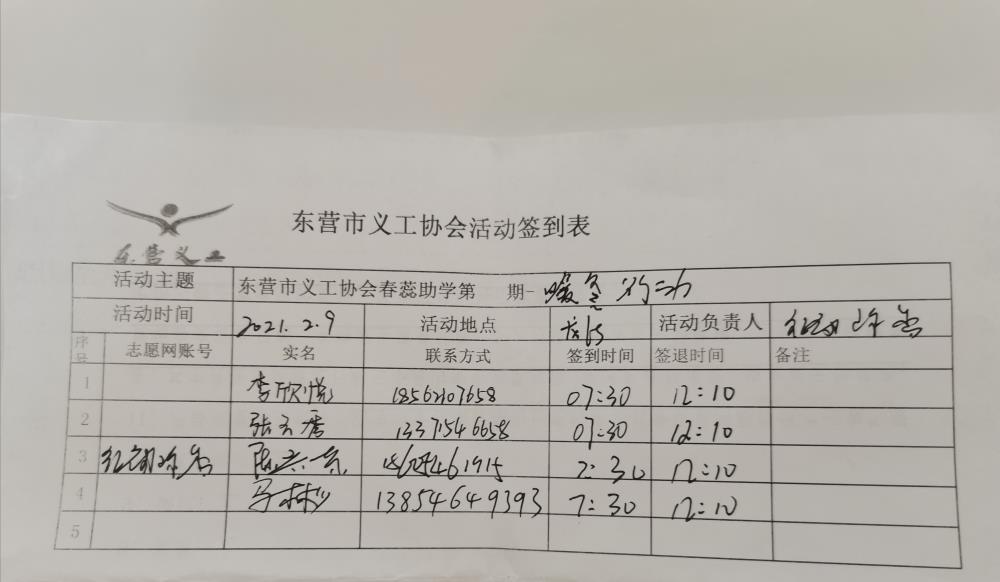 东营市义工协会活动签到表
东营义工
活动主题 东营市义工协会春蕊助学第 期-暖冬行动
活动时间 2021.2.9 活动地点 活动负责人
序号 志愿网账号 实名 联系方式 签到时间 签退时间 备注
1 李欣悦 18562107658 07:30 12:10
2 张云 13371546658 07:30 12:10
3 7:30 12:10
4 13854649393 7:30 12:10
5